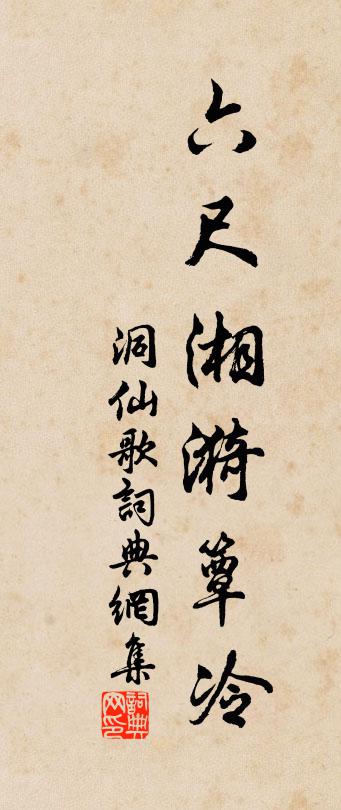 六尺湘漪簟冷
洞仙歌詞典網集
詞典网印